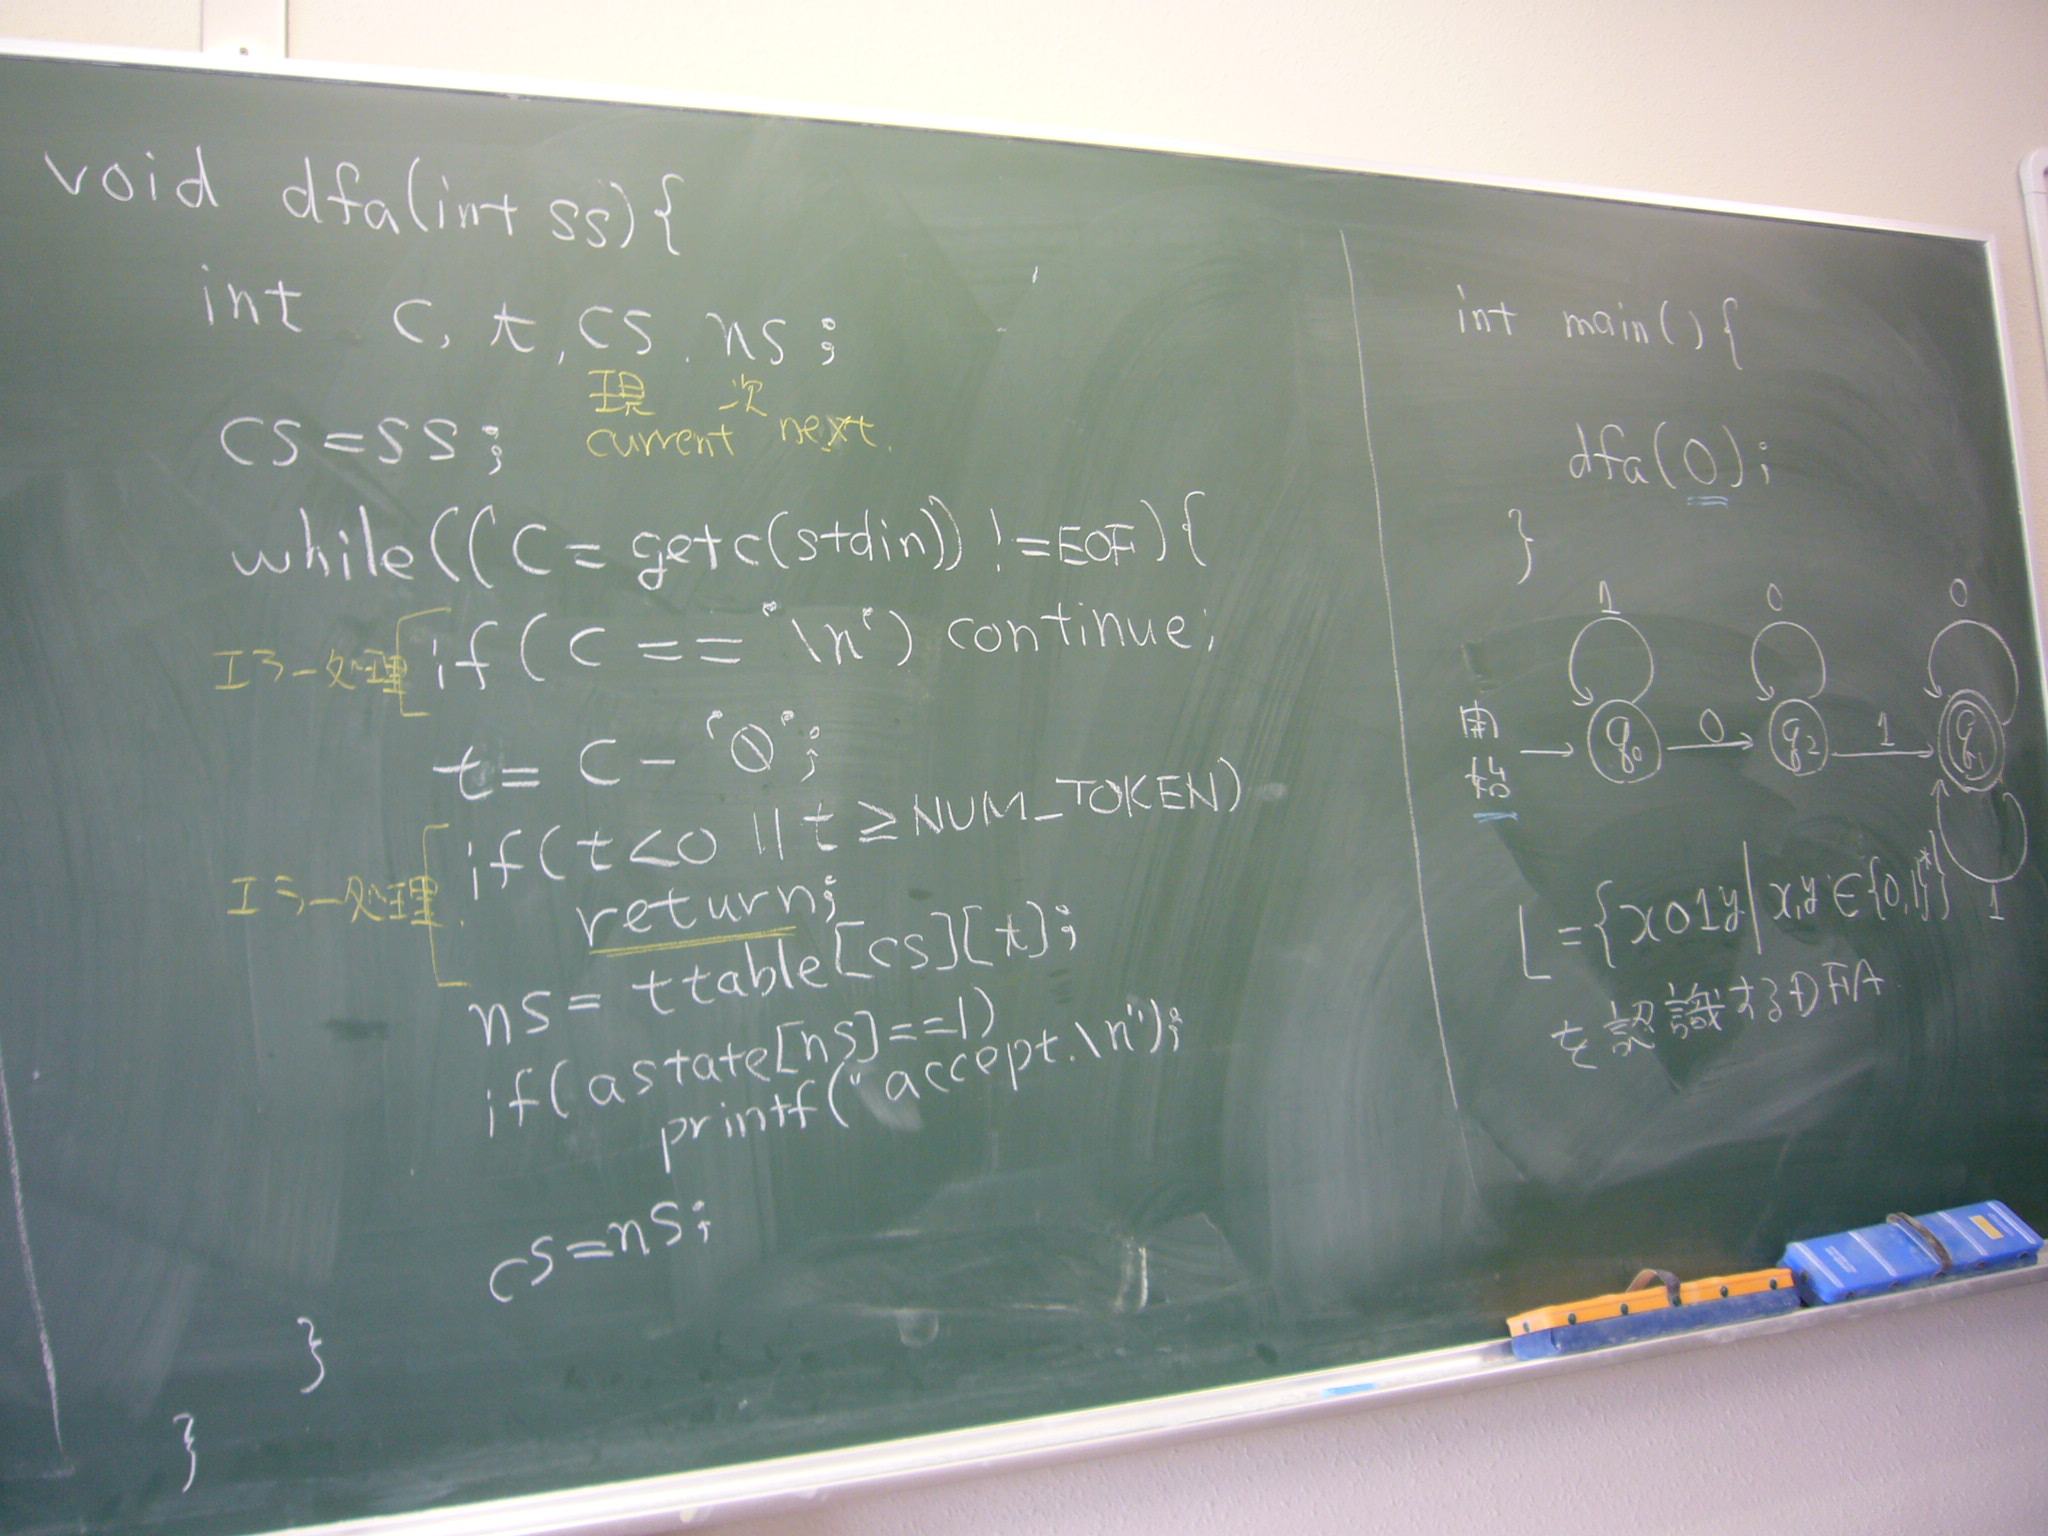 void dfa(int ss){
int c, t, cs, ns;
現 次
current next.
cs=ss;
while((c = getc(stdin)) != EOF){
エラー処理 if(c == '\n') continue;
t = c - '0';
エラー処理. if(t<0 || t ≥ NUM_TOKEN)
return;
ns = ttable[cs][t];
if(astate[ns]==1)
printf("accept.\n");
cs=ns;
}
}
int main(){
dfa(0);
}
1 0 0
開始 → q0 0 → q2 1 → q1
1
L={x01y|x,y∈{0,1}*}
を認識するDFA